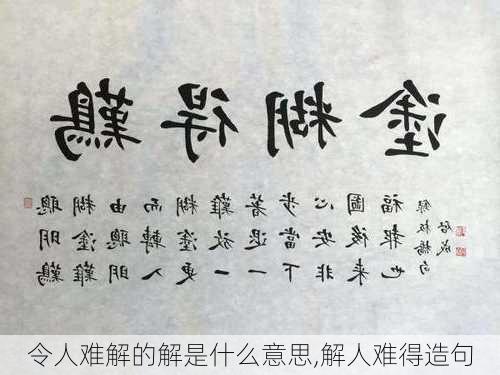 難得糊塗
聰明難
糊塗難
由聰明
而轉入
糊塗更
難放一
著退一
步當下
心安非
圖後來
福報也
鄭板橋句
令人难解的解是什么意思,解人难得造句